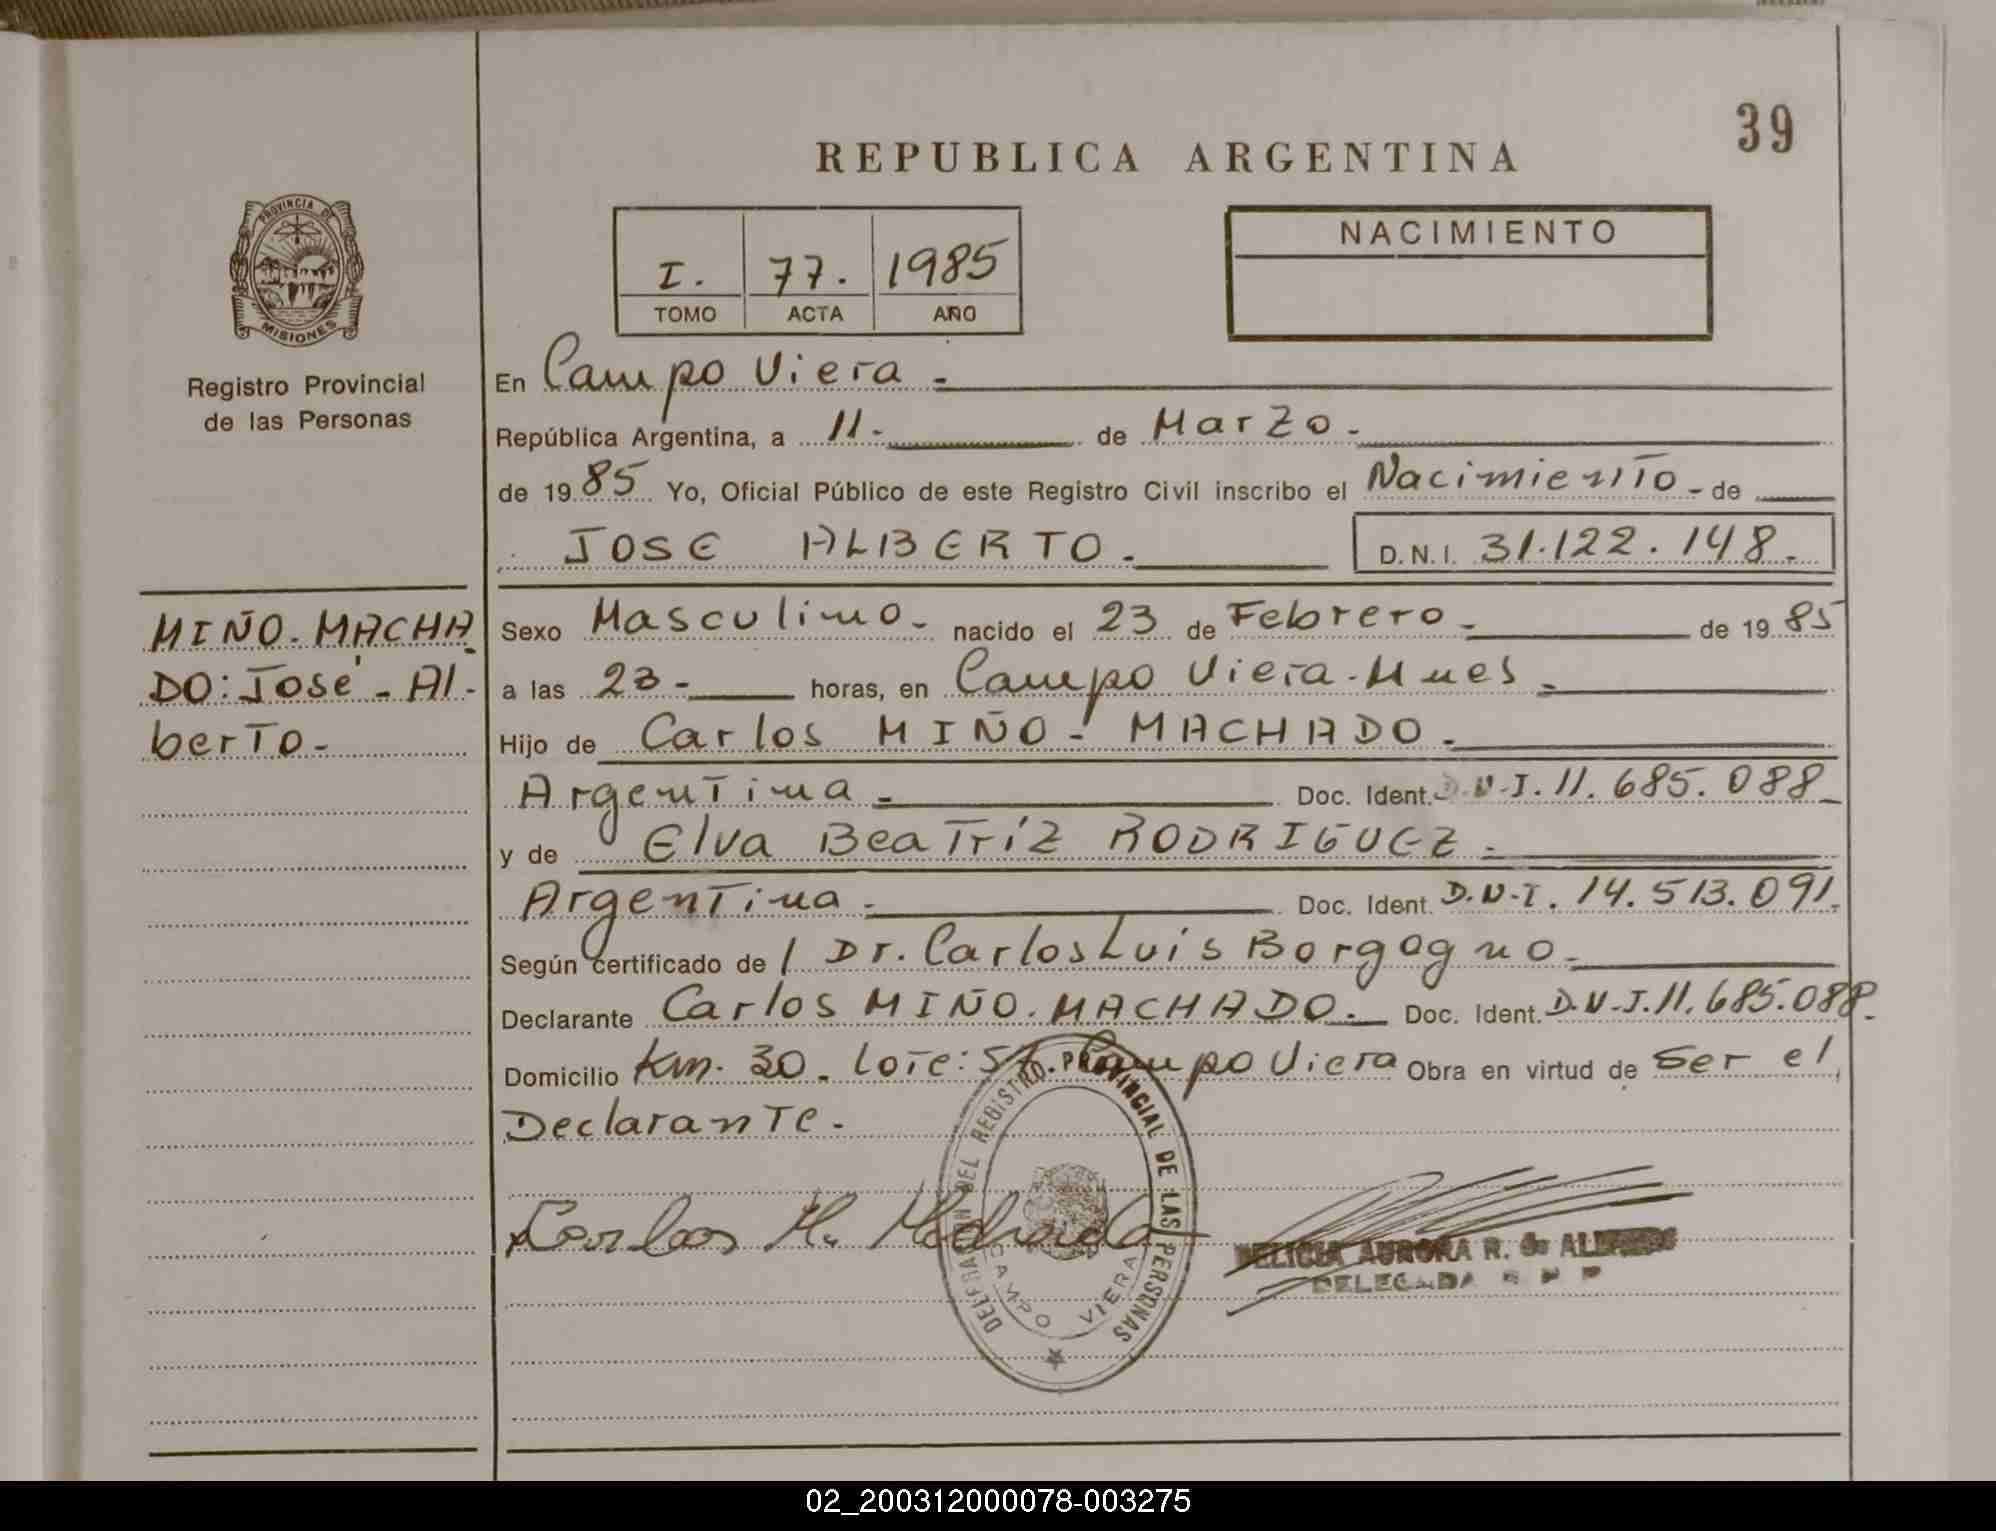 39
REPUBLICA ARGENTINA
PROVINCIA DE
MISIONES
Registro Provincial
de las Personas
I. 77. 1985
TOMO ACTA AÑO
NACIMIENTO
En Campo Viera.
República Argentina, a 11- de Marzo-
de 1985 Yo, Oficial Público de este Registro Civil inscribo el Nacimiento - de
JOSE ALBERTO.
D.N.I. 31.122.148.-
MIÑO. MACHA
DO: José - Al-
berto-
Sexo Masculino- nacido el 23 de Febrero- de 1985
a las 23- horas, en Campo Viera-Mnes.
Hijo de Carlos MIÑO - MACHADO.
Argentina - Doc. Ident. D.N.I. 11.685.088-
y de Elva Beatríz RODRIGUEZ-
Argentina- Doc. Ident. D.N.I. 14.513.091.
Según certificado de / Dr. Carlos Luis Borgogno-
Declarante Carlos MIÑO. MACHADO. Doc. Ident. D.N.I. 11.685.088-
Domicilio Km. 30. Lote: Campo Viera Obra en virtud de Ser el
Declarante.
Carlos M. Machado
DELEGACION DEL REGISTRO PROVINCIAL DE LAS PERSONAS
CAMPO VIERA
AURORA R. de
DELEGADA
02_200312000078-003275